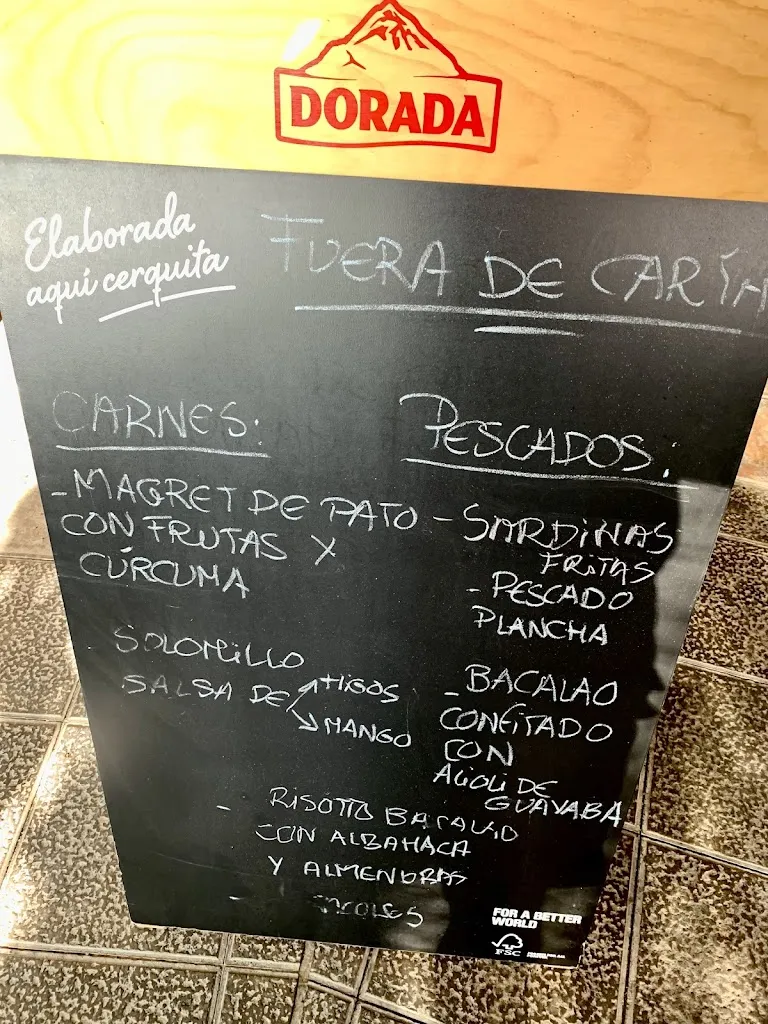 DORADA
Elaborada
aquí cerquita
FUERA DE
CARNES:
- MAGRET DE PATO
CON FRUTAS Y
CÚRCUMA
SOLOMILLO
SALSA DE HIGOS
MANGO
PESCADOS.
- SARDINAS
FRITAS
- PESCADO
PLANCHA
- BACALAO
CONFITADO
CON
ALIOLI DE
GUAYABA
- RISOTTO BACALAO
CON ALBAHACA
Y ALMENDRAS
-
FOR A BETTER
WORLD
FSC